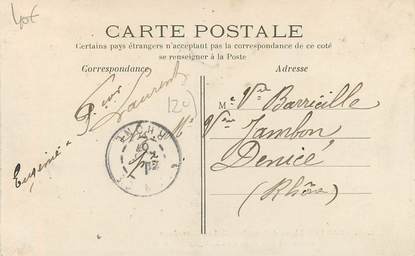 40€
CARTE POSTALE
Certains pays étrangers n'acceptant pas la correspondance de ce coté
se renseigner à la Poste
Correspondance
Adresse
Laurent
Eugénie
120
Me Vve Barriéille
Vve Jambon
Denicé
(Rhône)